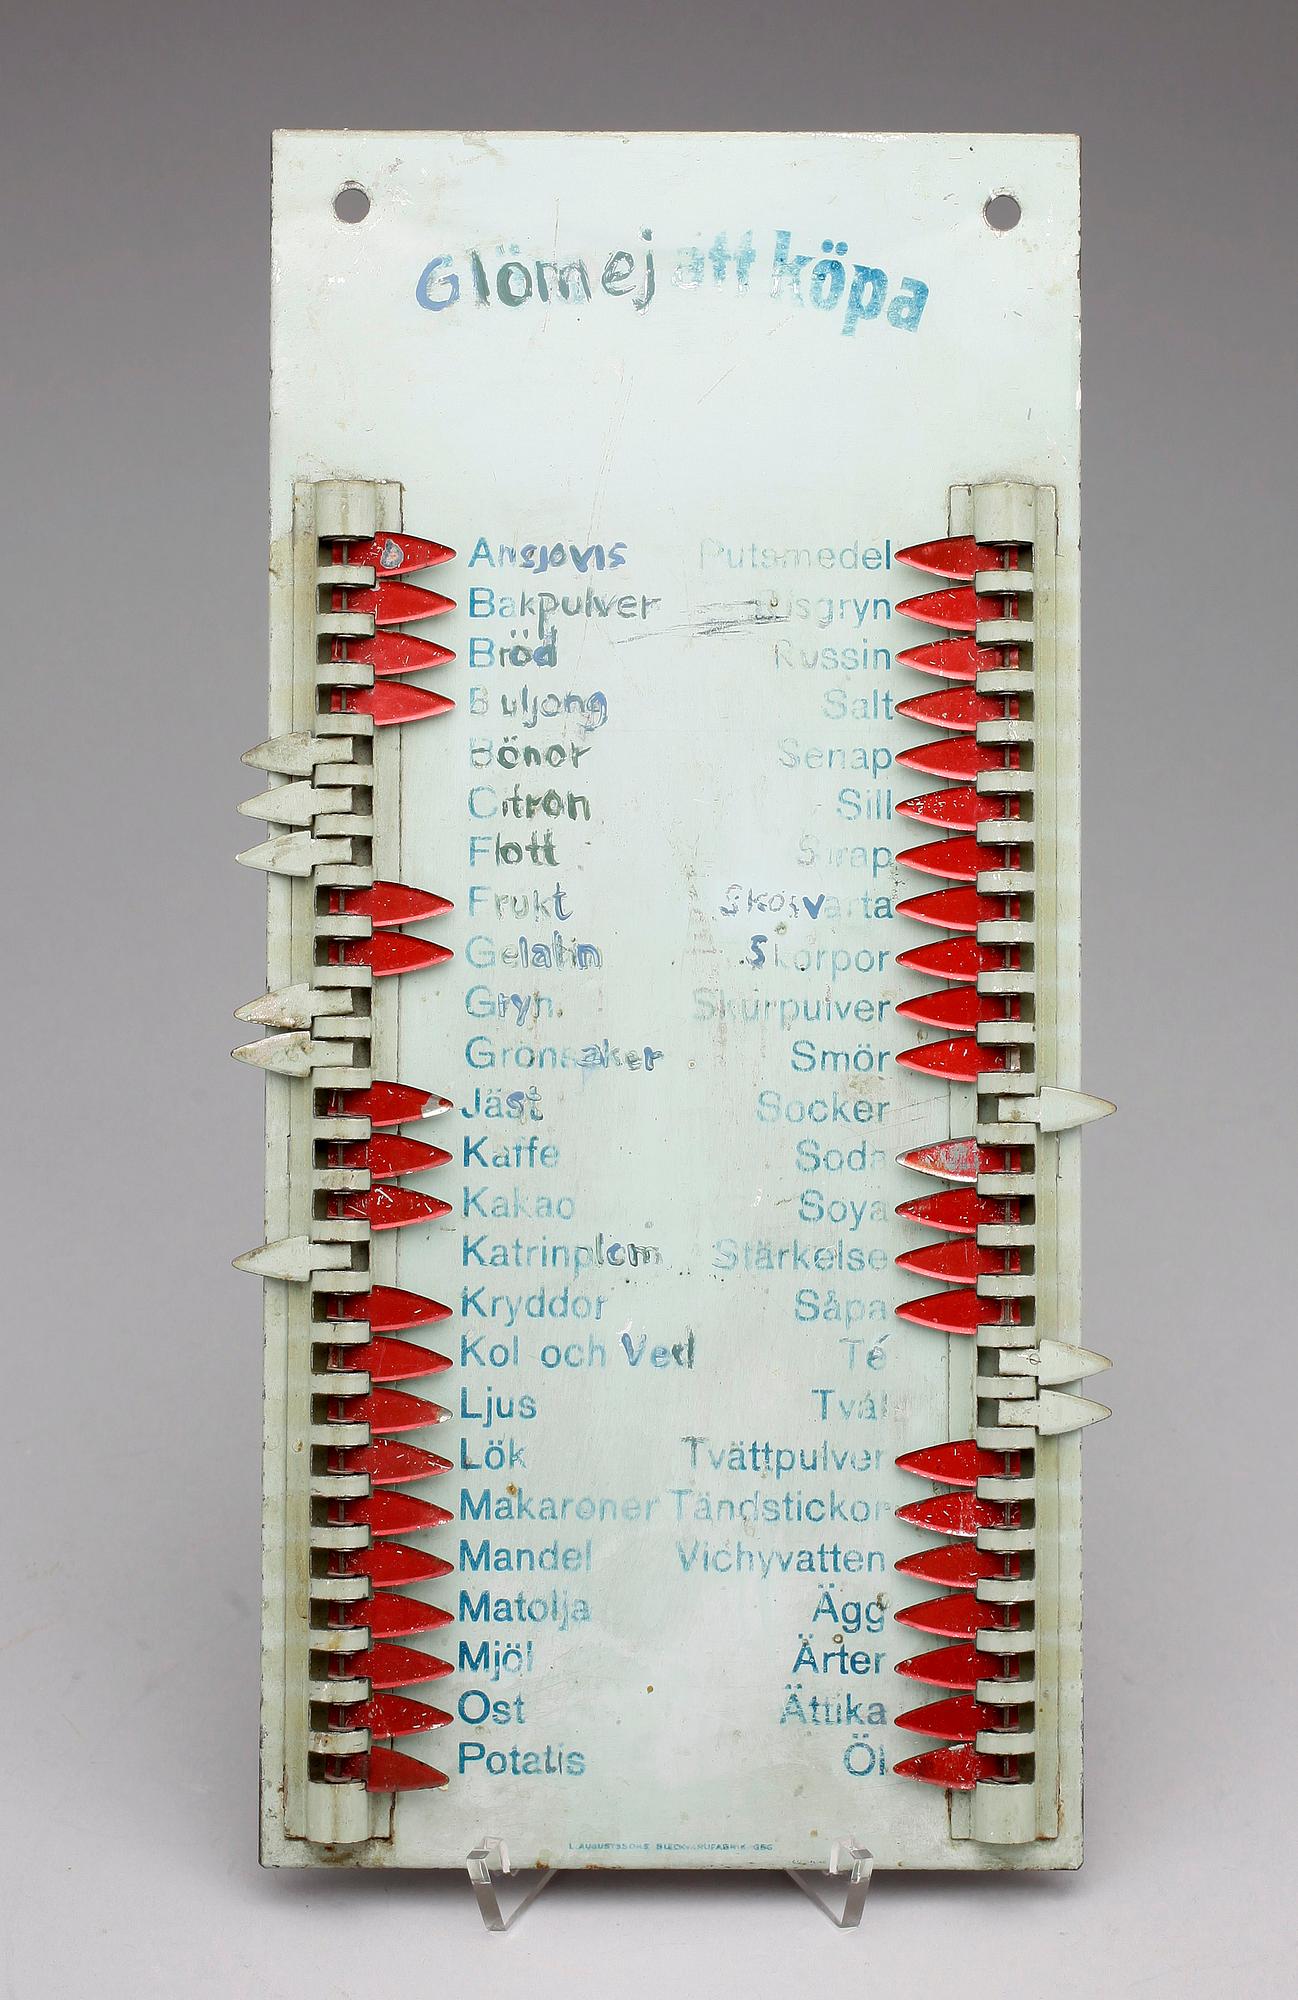 Glöm ej att köpa
Ansjovis Putsmedel
Bakpulver Risgryn
Bröd Russin
Buljong Salt
Bönor Senap
Citron Sill
Flott Sirap
Frukt Skosvärta
Gelatin Skorpor
Gryn Skurpulver
Grönsaker Smör
Jäst Socker
Kaffe Soda
Kakao Soya
Katrinplom Stärkelse
Kryddor Såpa
Kol och Ved Té
Ljus Tvål
Lök Tvättpulver
Makaroner Tändstickor
Mandel Vichyvatten
Matolja Ägg
Mjöl Ärter
Ost Ättika
Potatis Öl
L. AUGUSTSSONS BLECKVARUFABRIK GBG